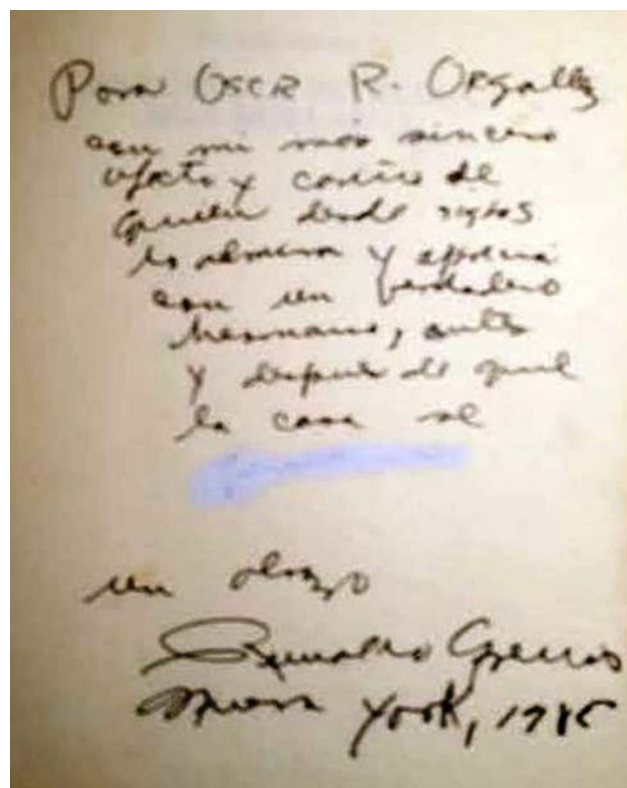 Para Oscar R. Orgallez
con mi más sincero
afecto y cariño de
quien desde siglos
lo admira y aprecia
con un verdadero
hermano, antes
y después de que
la casa se
un abrazo
Reinaldo Arenas
Nueva York, 1986